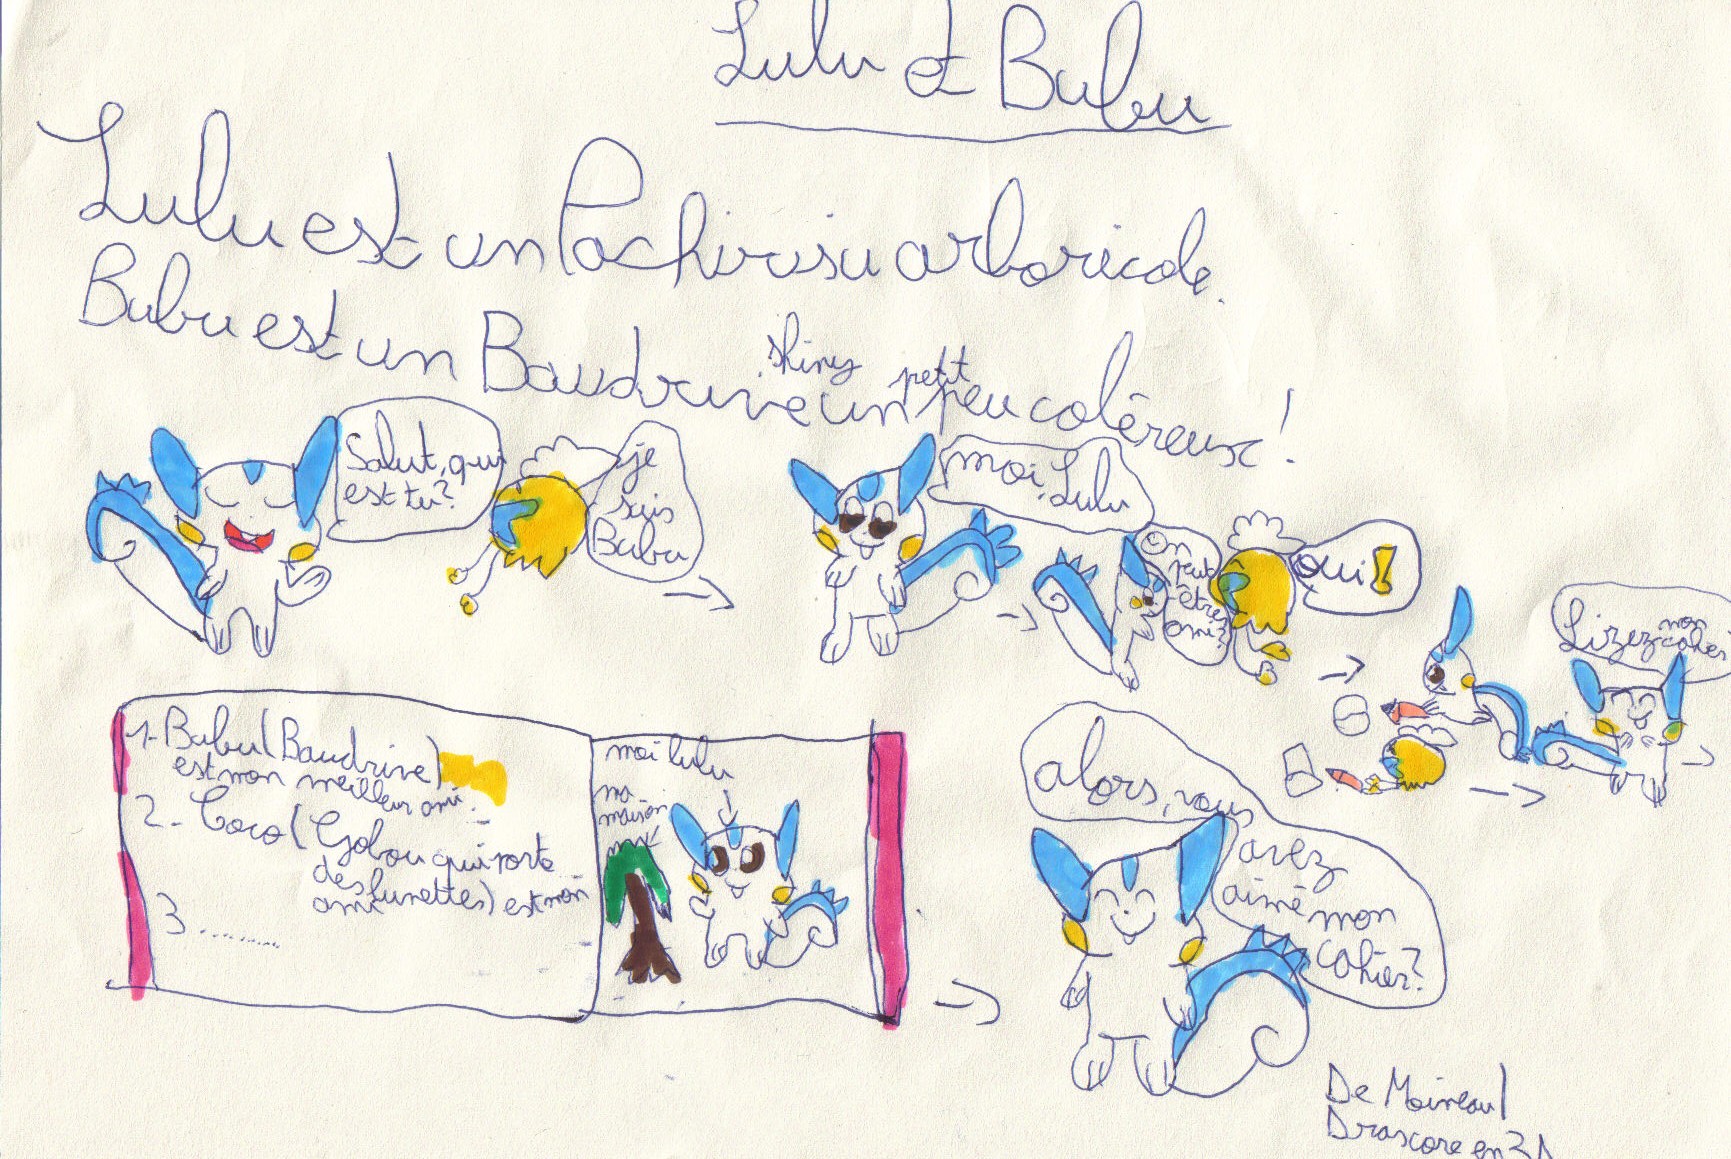 Lulu et Bubu
Lulu est un Pachirisu arboricole.
Bubu est un Baudrive shiny un petit peu coléreux !
Salut, qui
est tu?
je
suis
Bubu
moi, Lulu
on
peut
être
ami?
oui!
Lizez mon
cahier
1- Bubu (Baudrive)
est mon meilleur ami.
2- Coco (Gobou qui porte
des lunettes) est mon
ami
3.........
moi lulu
ma
maison
alors, vous
avez
aimé mon
cahier?
De Moineau/
Drascore en